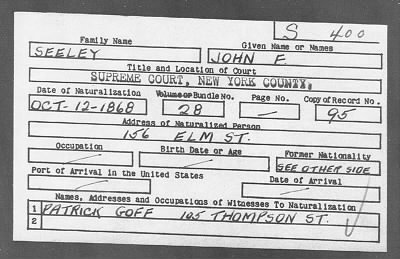 S 400
Family Name Given Name or Names
SEELEY JOHN F
Title and Location of Court
SUPREME COURT, NEW YORK COUNTY,
Date of Naturalization Volume or Bundle No. Page No. Copy of Record No.
OCT-12-1868 28 — 95
Address of Naturalized Person
156 ELM ST.
Occupation Birth Date or Age Former Nationality
SEE OTHER SIDE
Port of Arrival in the United States Date of Arrival
Names, Addresses and Occupations of Witnesses To Naturalization
1 PATRICK GOFF 105 THOMPSON ST.
2